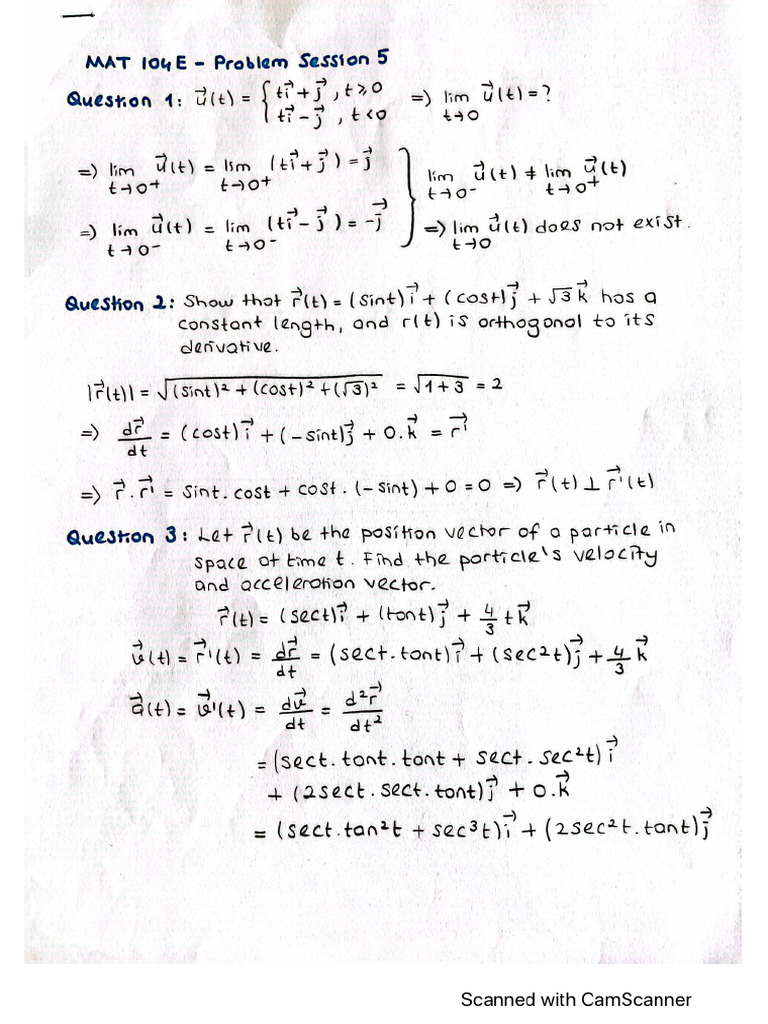 MAT 104E - Problem Session 5
Question 1: u⃗(t) = { ti⃗ + j⃗ , t ≥ 0 ⇒ lim t→0 u⃗(t) = ?
ti⃗ - j⃗ , t < 0
⇒ lim t→0⁺ u⃗(t) = lim t→0⁺ (ti⃗ + j⃗) = j⃗ } lim t→0⁻ u⃗(t) ≠ lim t→0⁺ u⃗(t)
⇒ lim t→0⁻ u⃗(t) = lim t→0⁻ (ti⃗ - j⃗) = -j⃗ ⇒ lim t→0 u⃗(t) does not exist.
Question 2: Show that r⃗(t) = (sint)i⃗ + (cost)j⃗ + √3 k⃗ has a
constant length, and r(t) is orthogonal to its
derivative.
|r⃗(t)| = √((sint)² + (cost)² + (√3)²) = √(1+3) = 2
⇒ dr⃗/dt = (cost)i⃗ + (-sint)j⃗ + 0.k⃗ = r⃗'
⇒ r⃗.r⃗' = sint.cost + cost.(-sint) + 0 = 0 ⇒ r⃗(t) ⊥ r⃗'(t)
Question 3: Let r⃗(t) be the position vector of a particle in
space at time t. Find the particle's velocity
and acceleration vector.
r⃗(t) = (sect)i⃗ + (tant)j⃗ + 4/3 tk⃗
v⃗(t) = r⃗'(t) = dr⃗/dt = (sect.tant)i⃗ + (sec²t)j⃗ + 4/3 k⃗
a⃗(t) = v⃗'(t) = dv⃗/dt = d²r⃗/dt²
= (sect.tant.tant + sect.sec²t)i⃗
+ (2sect.sect.tant)j⃗ + 0.k⃗
= (sect.tan²t + sec³t)i⃗ + (2sec²t.tant)j⃗
Scanned with CamScanner